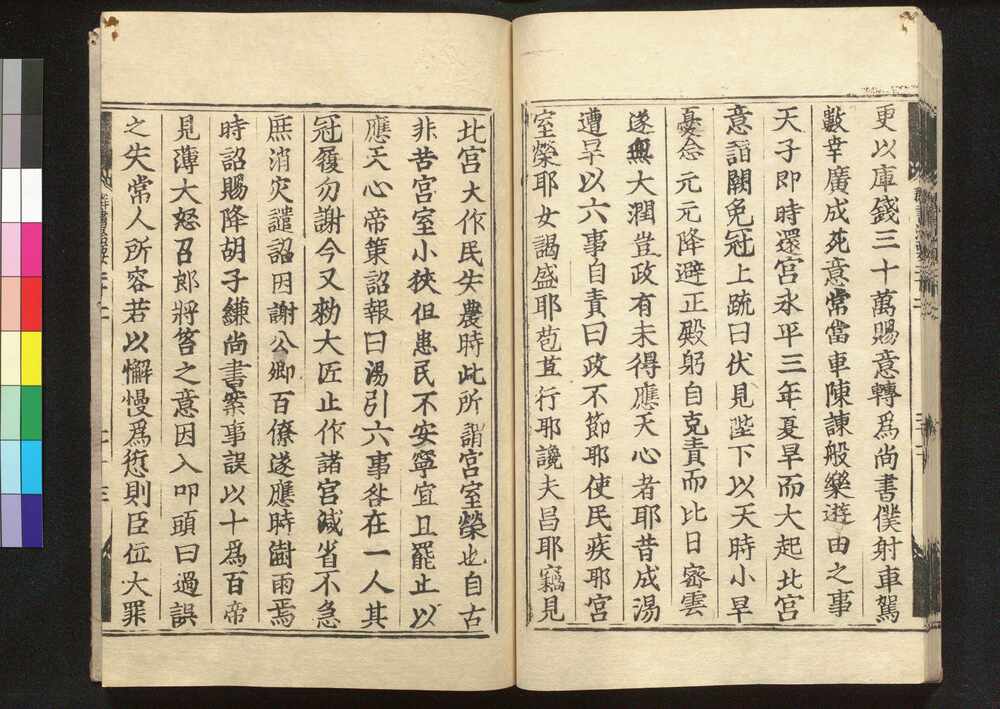 更以庫錢三十萬賜意轉爲尚書僕射車駕
數幸廣成苑意常當車陳諫般樂遊田之事
天子即時還宮永平三年夏旱而大起北宮
意詣闕免冠上疏曰伏見陛下以天時小旱
憂念元元降避正殿躬自克責而比日密雲
遂無大潤豈政有未得應天心者耶昔成湯
遭旱以六事自責曰政不節耶使民疾耶宮
室榮耶女謁盛耶苞苴行耶讒夫昌耶竊見
北宮大作民失農時此所謂宮室榮也自古
非苦宮室小狹但患民不安寧宜且罷止以
應天心帝策詔報曰湯引六事咎在一人其
冠履勿謝今又勑大匠止作諸宮減省不急
庶消灾譴詔因謝公卿百僚遂應時澍雨焉
時詔賜降胡子縑尚書案事誤以十爲百帝
見薄大怒召郎將笞之意因入叩頭曰過誤
之失常人所容若以懈慢爲愆則臣位大罪